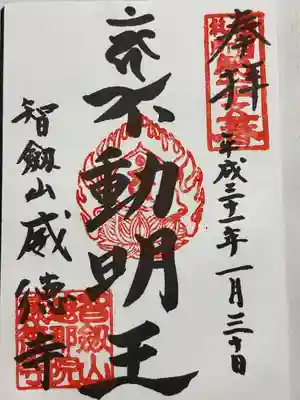 奉拝
平成二十一年一月三十日
不動明王
智劔山威徳寺